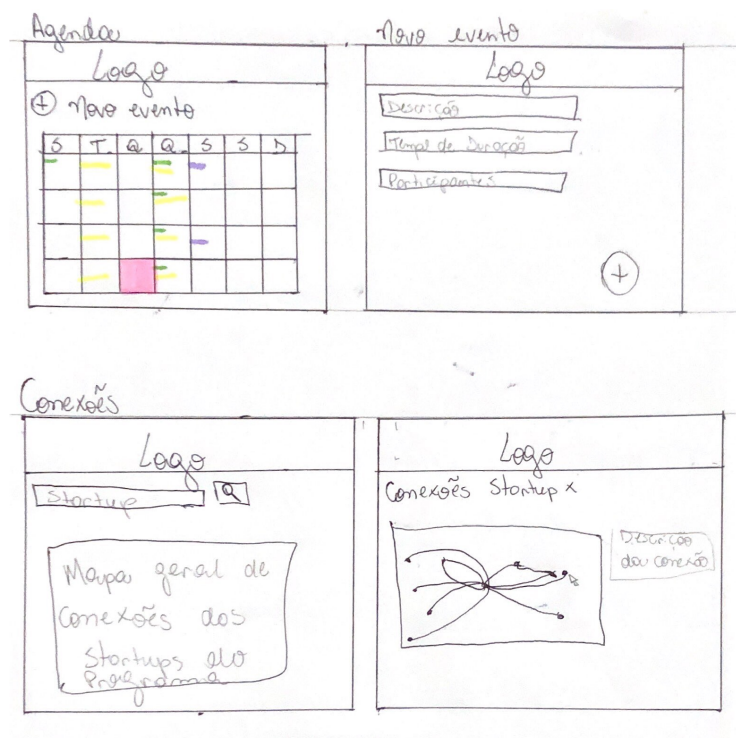 Agenda
Logo
+ Novo evento
S T Q Q S S D
Novo evento
Logo
Descrição
Tempo de Duração
Participantes
+
Conexões
Logo
Startup
Mapa geral de
Conexões das
Startups do
Programa
Logo
Conexões Startup x
Descrição
da conexão